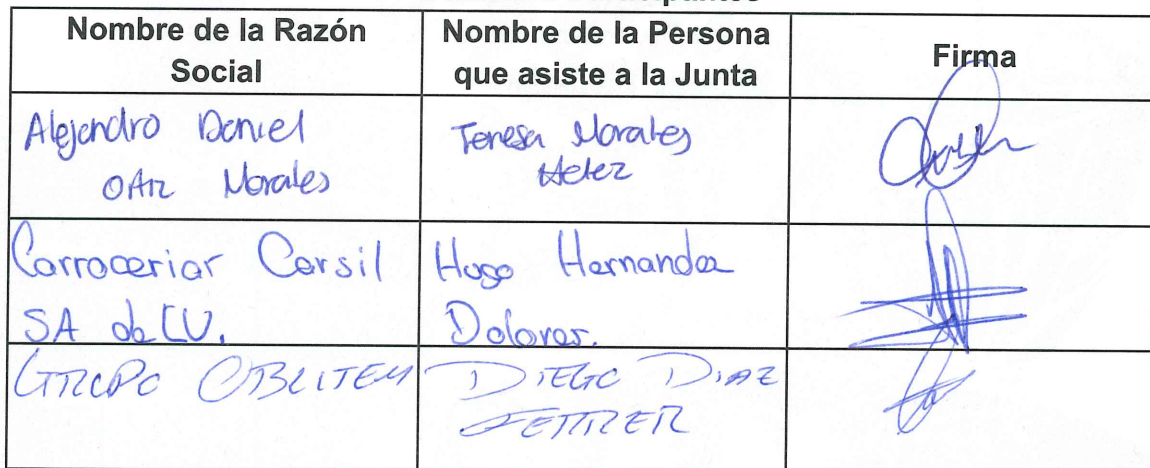 Nombre de la Razón Social
Nombre de la Persona que asiste a la Junta
Firma
Alejandro Daniel
Morales
Teresa Morales
Carrocerias Carsil
SA de CV.
Hugo Hernandez
Dolores.
GRUPO
DIEGO DIAZ